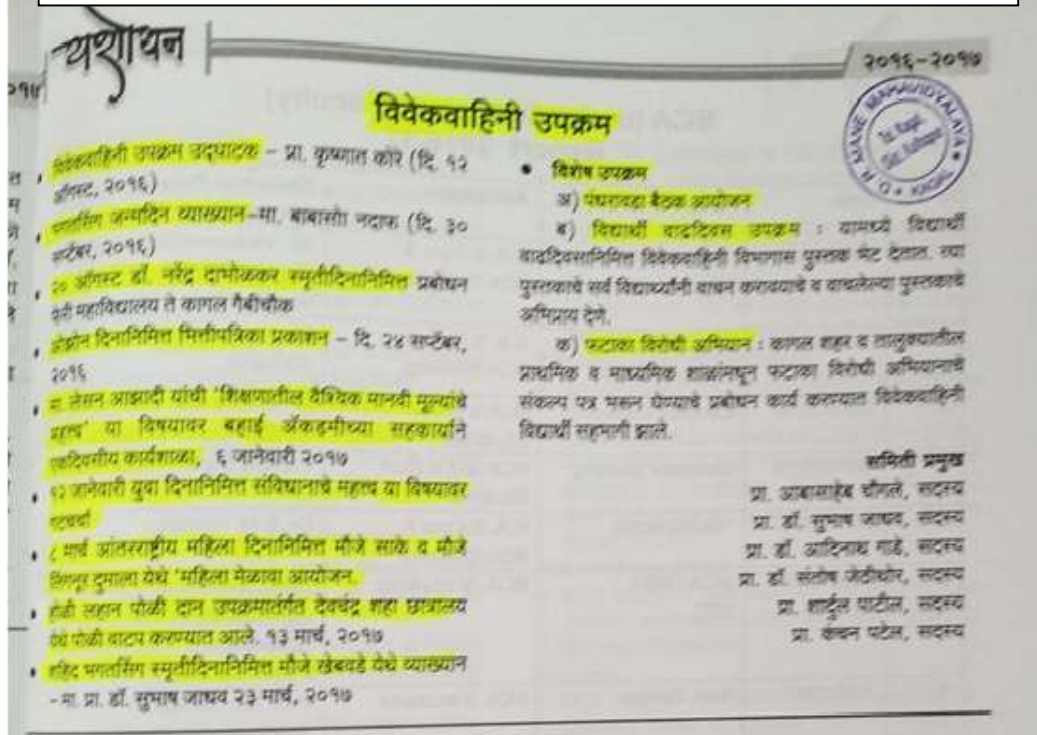 यशोधन
२०१६-२०१७
विवेकवाहिनी उपक्रम
विवेकवाहिनी उपक्रम उद्घाटक – प्रा. कृष्णात कोरे (दि. १२
ऑगस्ट, २०१६)
भगतसिंग जन्मदिन व्याख्यान–मा. बाबासो नदाफ (दि. ३०
सप्टेंबर, २०१६)
२० ऑगस्ट डॉ. नरेंद्र दाभोळकर स्मृतीदिनानिमित्त प्रबोधन
फेरी महाविद्यालय ते कागल गैबीचौक
ओझोन दिनानिमित्त भित्तीपत्रिका प्रकाशन – दि. २४ सप्टेंबर,
२०१६
मा. लेसन आझादी यांची 'शिक्षणातील वैश्विक मानवी मूल्यांचे
महत्त्व' या विषयावर बहाई ॲकडमीच्या सहकार्याने
एकदिवसीय कार्यशाळा, ६ जानेवारी २०१७
१२ जानेवारी युवा दिनानिमित्त संविधानाचे महत्त्व या विषयावर
गटचर्चा
८ मार्च आंतरराष्ट्रीय महिला दिनानिमित्त मौजे साके व मौजे
दुमाला येथे 'महिला मेळावा आयोजन.
होळी लहान पोळी दान उपक्रमातंर्गत देवचंद्र शहा छात्रालय
येथे पोळी वाटप करण्यात आले. १३ मार्च, २०१७
शहिद भगतसिंग स्मृतीदिनानिमित्त मौजे खेबवडे येथे व्याख्यान
-मा. प्रा. डॉ. सुभाष जाधव २३ मार्च, २०१७
• विशेष उपक्रम
अ) पंधरावडा बैठक आयोजन
ब) विद्यार्थी वाढदिवस उपक्रम : यामध्ये विद्यार्थी
वाढदिवसानिमित्त विवेकवाहिनी विभागास पुस्तक भेट देतात. त्या
पुस्तकाचे सर्व विद्यार्थ्यांनी वाचन करावयाचे व वाचलेल्या पुस्तकाचे
अभिप्राय देणे.
क) फटाका विरोधी अभियान : कागल शहर व तालुक्यातील
प्राथमिक व माध्यमिक शाळांमधून फटाका विरोधी अभियानाचे
संकल्प पत्र भरून घेण्याचे प्रबोधन कार्य करण्यात विवेकवाहिनी
विद्यार्थी सहभागी झाले.
समिती प्रमुख
प्रा. आबासाहेब चौगले, सदस्य
प्रा. डॉ. सुभाष जाधव, सदस्य
प्रा. डॉ. आदिनाथ गाडे, सदस्य
प्रा. डॉ. संतोष जेठीथोर, सदस्य
प्रा. शार्दुल पाटील, सदस्य
प्रा. कंचन पटेल, सदस्य